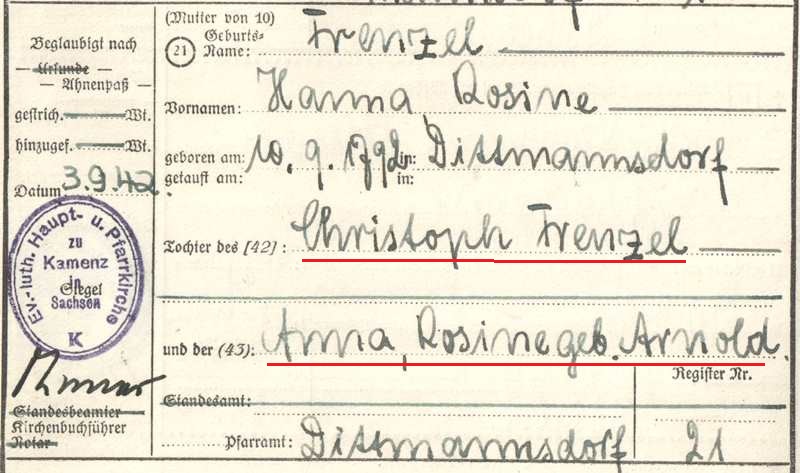 (Mutter von 10)
(21) Geburts-Name: Frenzel
Vornamen: Hanna, Rosine
geboren am: 10. 9. 1792 in: Dittmannsdorf
getauft am: in:
Tochter des [42]: Christoph Frenzel
und der (43): Anna, Rosine geb. Arnold.
Register Nr.
Standesamt:
Pfarramt: Dittmannsdorf 21
Beglaubigt nach
— Urkunde —
— Ahnenpaß —
gestrich. Wt.
hinzugef. Wt.
Datum 3.9.42.
Ev.-luth. Haupt- u. Pfarrkirche
zu
Kamenz
in
Siegel
Sachsen
K
Standesbeamter
Kirchenbuchführer
Notar